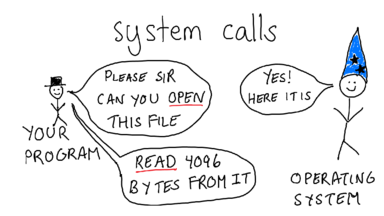 system calls
PLEASE SIR
CAN YOU OPEN
THIS FILE
YES!
HERE IT IS
YOUR
PROGRAM
READ 4096
BYTES FROM IT
OPERATING
SYSTEM